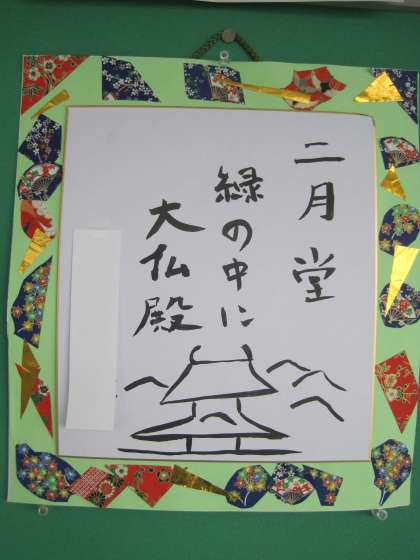 二月堂
緑の中に
大仏殿